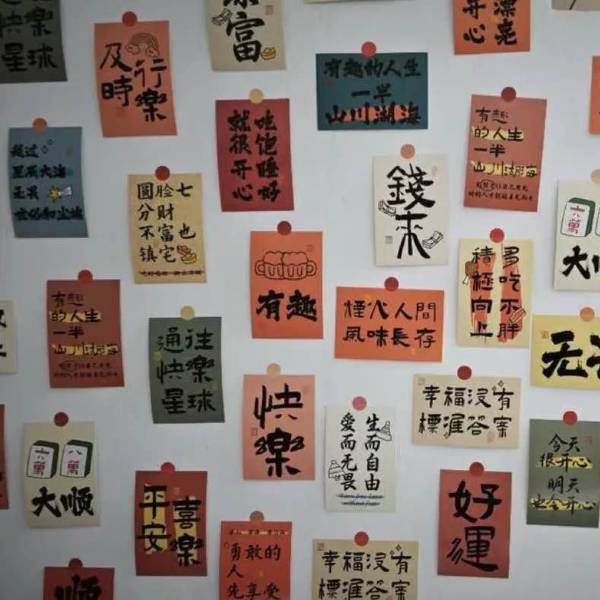 快
星球
及時
行樂
富
有趣的人生
一半
山川湖海
开心
漂亮
星辰大海
无畏
圆脸七
分财
不富也
镇宅
吃饱睡好
就很开心
錢来
有趣
的人生
一半
山川湖海
六萬
大
有趣
煙火人間
風味長存
多吃不胖
積極向上
无
有趣
的人生
一半
山川湖海
通往
快樂
星球
快樂
生而自由
爱而无畏
幸福没有
標准答案
今天
很开心
明天
也会开心
六萬
八萬
大顺
平安
喜樂
好運
顺
勇敢的
人
先享受
幸福没有
標准答案